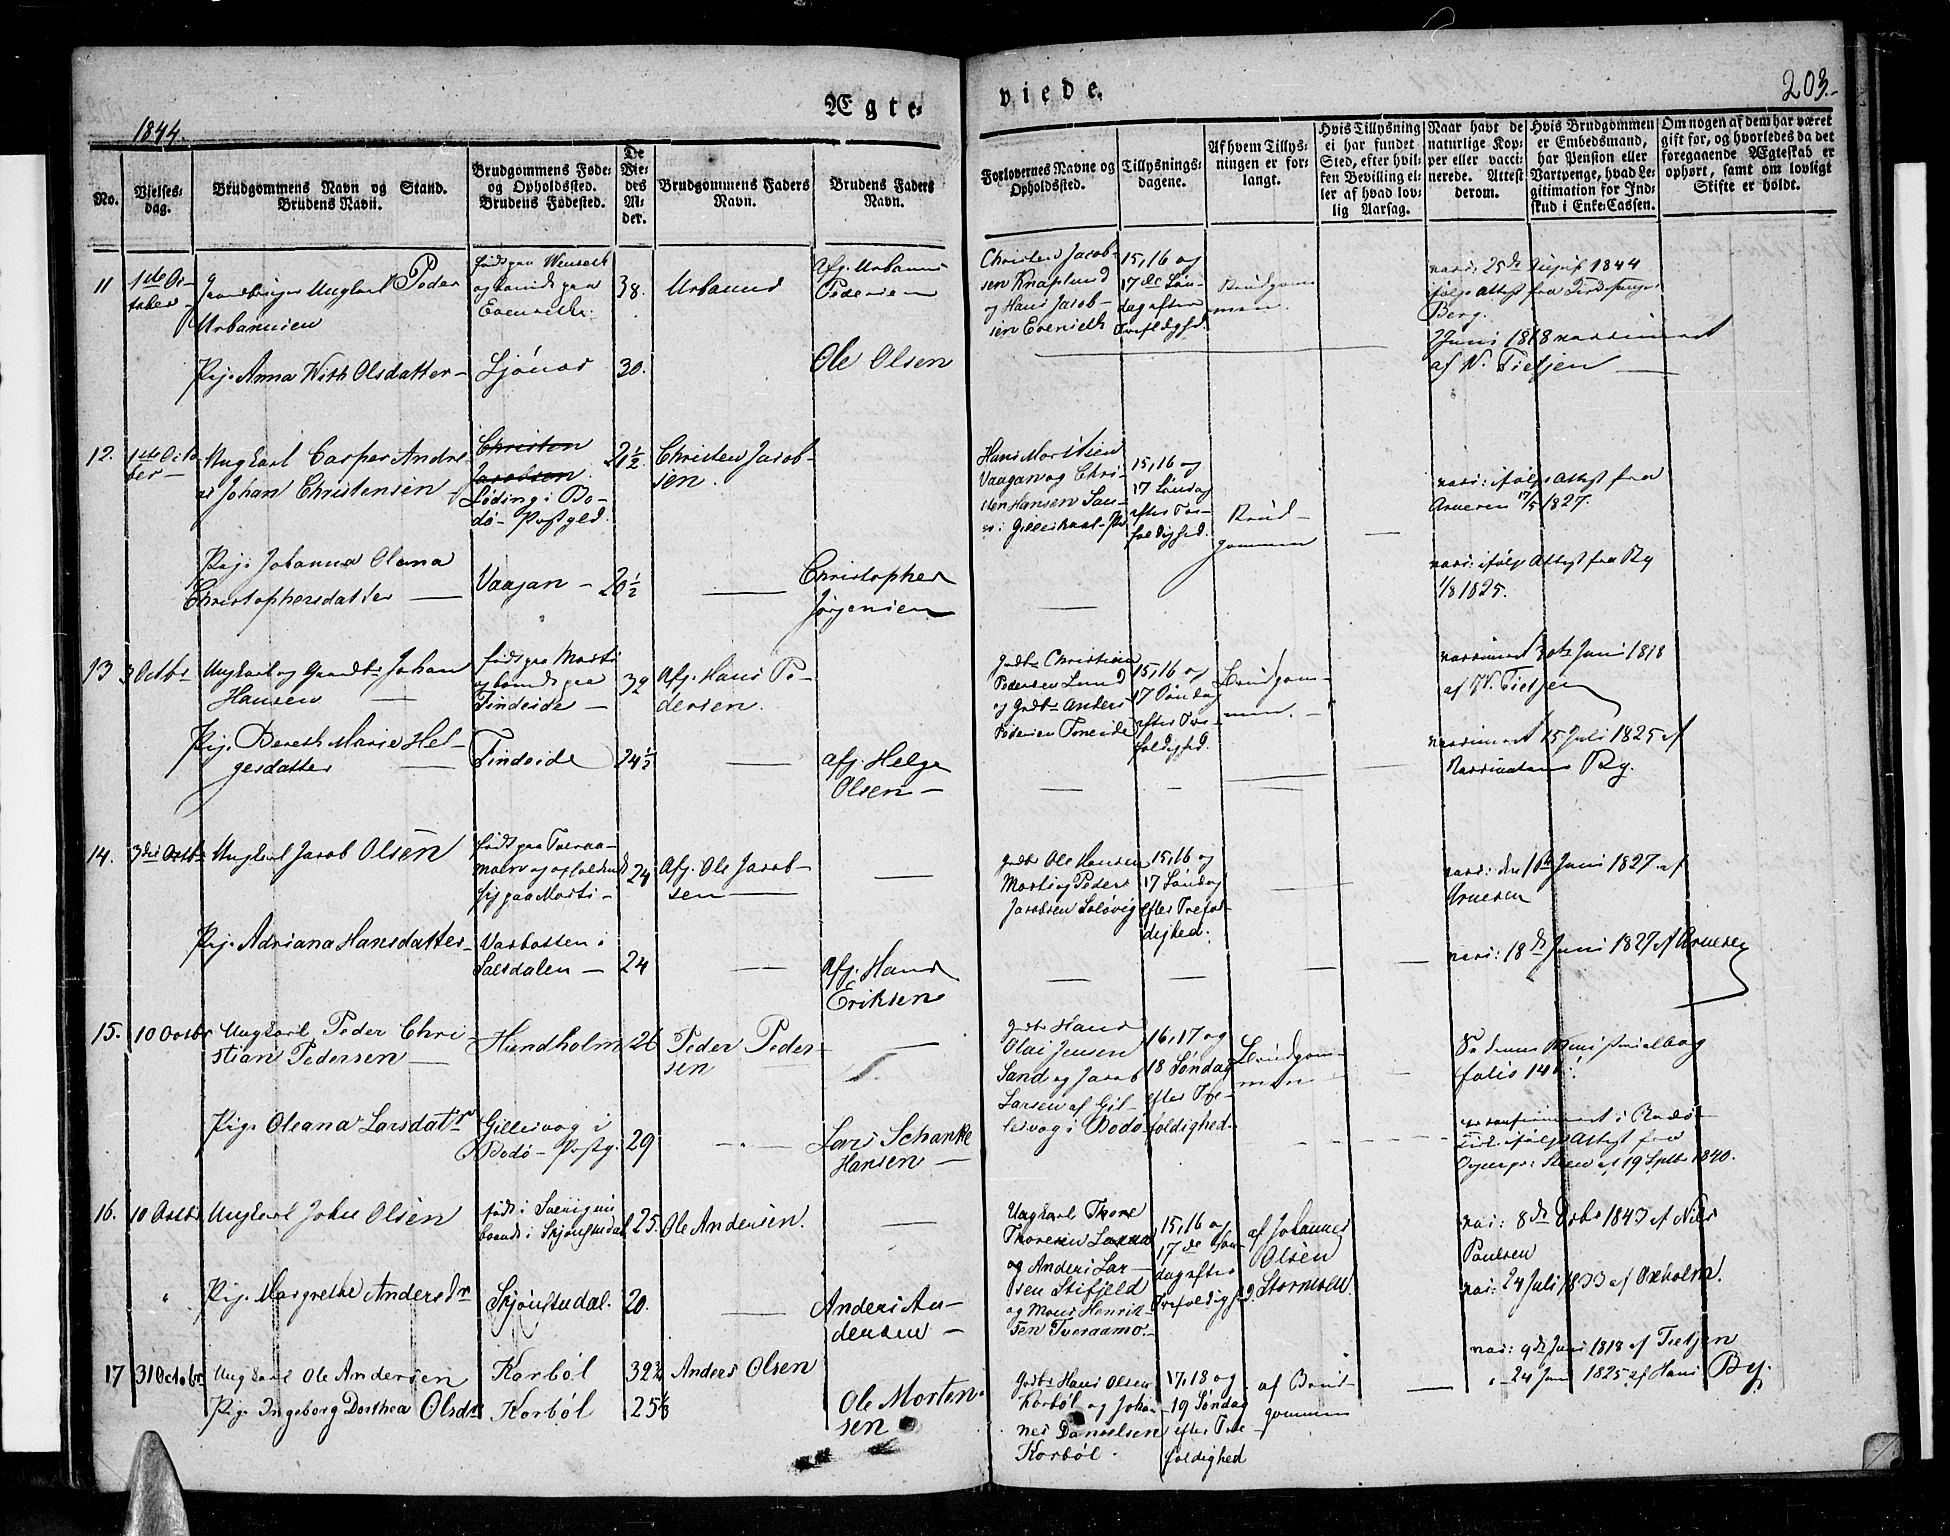 Ægte-
viede.
203.
1844.
No.
Vielses-
dag.
Brudgommens Navn og Stand.
Brudens Navn.
Brudgommens Føde-
og Opholdssted.
Brudens Fødested.
De
Vie-
des
Al-
der.
Brudgommens Faders
Navn.
Brudens Faders
Navn.
Forlovernes Navne og
Opholdssted.
Tillysnings-
dagene.
Af hvem Tillys-
ningen er for-
langt.
Hvis Tillysning
ei har fundet
Sted, efter hvil-
ken Bevilling el-
ler af hvad lov-
lig Aarsag.
Naar havt de
naturlige Kop-
per eller vacci-
nerede. Attest
derom.
Hvis Brudgommen
er Embedsmand,
har Pension eller
Vartpenge, hvad Le-
gitimation for Ind-
skud i Enke-Cassen.
Om nogen af dem har været
gift før, og hvorledes da det
foregaaende Ægteskab er
ophørt, samt om lovligt
Skifte er holdt.
11
1ste Oc-
tober
Ungkarl Peder
Urbanusen
født paa
og boende paa
Evenseth.
38.
Urbanus
Afg. Urbanus
Pedersen
Christen Jacob-
sen Knaplund
og Hans Jacob-
sen Evenseth
15, 16 og
17de Søn-
dag efter
Trefoldighed.
Brudgom-
men.
vacc: 25de 1844
ifølge Attest fra
Berg.
Pig. Anna With Olsdatter
30.
Ole Olsen
Juni 1818 vaccineret
af V. Tietjen
12.
1ste Octo
ber
Ungkarl Casper Andre
as Johan Christensen
Christen
Jacobsen
Løding i Bo-
dø Præstgld.
21½
Christen Jacob-
sen.
Hans Mortensen
Vaagan og Chri-
sten Hansen
i Gilleskaal
15, 16 og
17 Søndag
efter Tre-
foldighed.
Brud-
gommen
vacc: ifølge Attest fra
Arnesen 17/5 1827.
Pig. Johanna Olana
Christophersdatter
Vaagan
20½
Christopher
Jørgensen
vacc: ifølge Attest fra By
1/8 1825.
13
3 Octbr
Ungkarl og Gaardbr Johan
Hansen
født paa Morti
og boende paa
Tindeide
32
Afg. Hans Pe-
dersen.
Gdbr Christian
Pedersen Lund
og Gdbr Anders
Pedersen Toneide
15, 16 og
17 Søndag
efter Tre-
foldighed.
Brudgom-
men.
vaccineret 30te Juni 1818
af V. Tietjen
Pig. Bereth Marie Hel-
gesdatter
Tindeide
24½
Afg. Helge
Olsen
vaccineret 15 Juli 1825 af
By.
14.
3die Octbr
Ungkarl Jacob Olsen
født paa Tveraa-
moen og opholdende
sig paa Morti
24
Afg. Ole Jacob-
sen
Gdbr Ole Hansen
Morti og Peder
Jacobsen Solövig
15, 16 og
17 Søndag
efter Trefol-
dighed.
vacc: den Juni 1827 af
Arnesen
Pig. Adriana Hansdatter
Vasbotten i
Salsdalen
24
Afg. Hans
Eriksen
vacc: 18de Juni 1827 af Arnesen
15.
10 Octbr
Ungkarl Peder Chri
stian Pedersen
Hundholm
26
Peder Peder-
sen
Gdbr Hans
Olai Jensen
Sand og Jacob
Larsen af Gil-
lesvog i Bodø
16, 17 og
18 Søndag
efter Tre-
foldighed.
Brudgom-
men
Se denne Ministerialbog
folio 141.
Pig. Oleana Larsdatr
Gillesvog i
Bodø Præstg.
29
Lars Schanke
Hansen
er confirmeret i Bodø
Kirke ifølge Attest fra
af 19 Septbr 1840.
16.
10 Octbr
Ungkarl John Olsen
født i Sverig og
boende i Skjønstudal
25.
Ole Andersen.
Ungkarl Thore
Thoresen
og Anders Lar-
sen Stifjeld
og Mons Henrik-
sen Tveraamo.
15, 16 og
17de Søn-
dag efter
Trefoldighed.
af Johannes
Olsen
Stormoen
vac: 8de Octbr 1843 af Nils
Paulsen
Pig. Margrethe Andersdr
Skjønstudal.
20.
Anders An-
dersen
vac: 24 Juli 1833 af Oxholm.
17
31 October
Ungkarl Ole Andersen
Korbøl
32¾
Anders Olsen
Gdbr Hans Olsen
Korbøl og Johan-
nes Danielsen
Korbøl.
17, 18 og
19 Søndag
efter Tre-
foldighed
af Brud-
gommen
vac: 9de Juni 1818 af Tietjen
Pig. Ingeborg Dorthea Olsdr
Korbøl
25⅓
Ole Morten-
sen
" 24 Juni 1825 af Hans By.